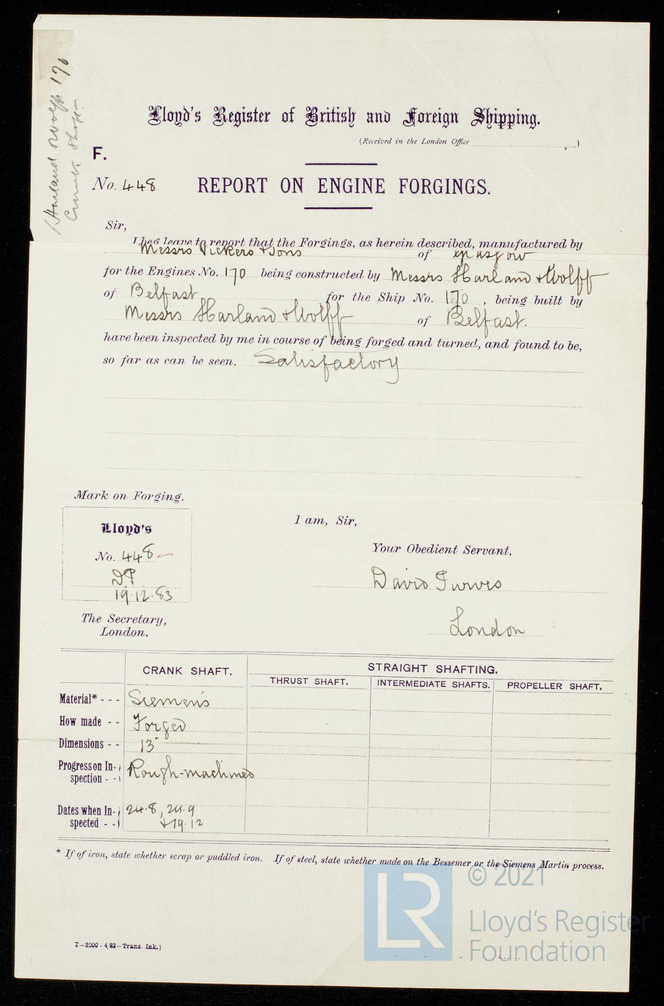 Harland & Wolff 170
Crank Shaft
Lloyd's Register of British and Foreign Shipping.
(Received in the London Office )
F.
No. 448 REPORT ON ENGINE FORGINGS.
Sir,
I beg leave to report that the Forgings, as herein described, manufactured by
Messrs Vickers & Sons of Glasgow
for the Engines No. 170 being constructed by Messrs Harland & Wolff
of Belfast for the Ship No. 170, being built by
Messrs Harland & Wolff of Belfast.
have been inspected by me in course of being forged and turned, and found to be,
so far as can be seen, Satisfactory
Mark on Forging.
Lloyd's
No. 448
DP
19.12.83
I am, Sir,
Your Obedient Servant,
David Purves
London
The Secretary,
London.
CRANK SHAFT. STRAIGHT SHAFTING.
THRUST SHAFT. INTERMEDIATE SHAFTS. PROPELLER SHAFT.
Material* - - - Siemens
How made - - Forged
Dimensions - - 13"
Progress on In-spection - - Rough-machined
Dates when In-spected - - 24.8, 20.9
& 19.12
* If of iron, state whether scrap or puddled iron. If of steel, state whether made on the Bessemer or the Siemens Martin process.
T—2000—4/83—Trans. Ink.]
© 2021
LR Lloyd's Register
Foundation